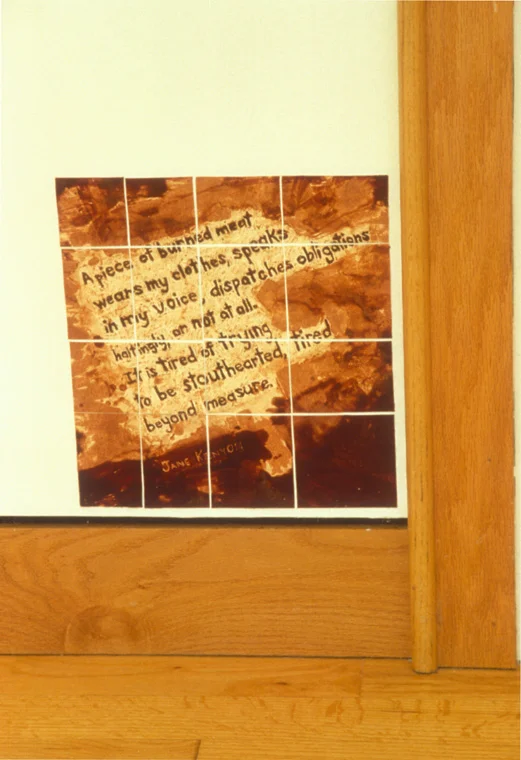 A piece of burned meat
wears my clothes, speaks
in my voice, dispatches obligations
haltingly, or not at all.
It is tired of trying
to be stouthearted, tired
beyond measure.
JANE KENYON